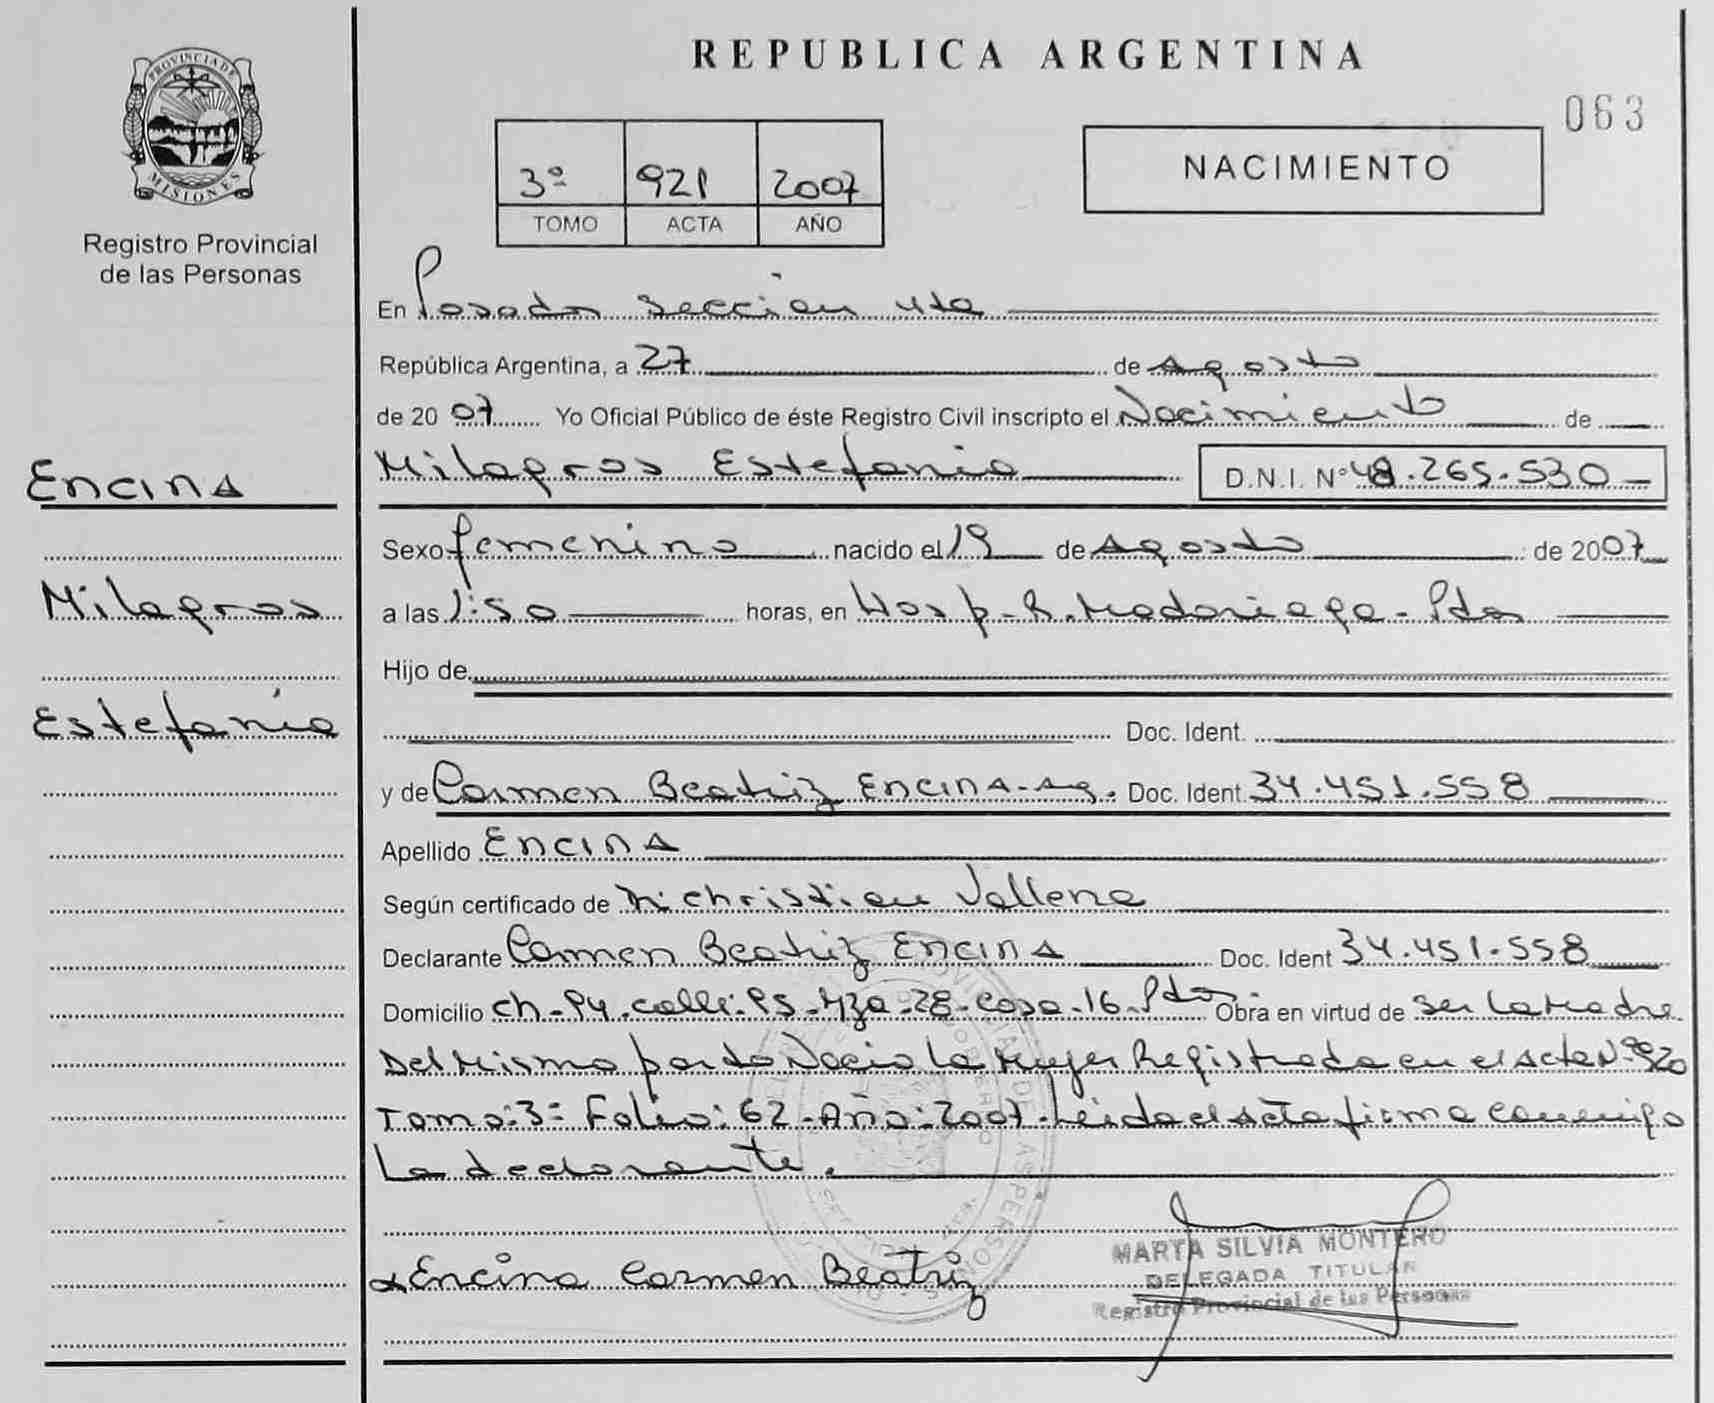 PROVINCIA DE
MISIONES
Registro Provincial
de las Personas
Encina
Milagros
Estefanía
REPUBLICA ARGENTINA
063
3º 921 2007
TOMO ACTA AÑO
NACIMIENTO
En Posadas Sección 4ta
República Argentina, a 27 de Agosto
de 2007 Yo Oficial Público de éste Registro Civil inscripto el Nacimiento de
Milagros Estefania D.N.I. Nº 48.265.530
Sexo femenino nacido el 19 de Agosto de 2007
a las 1:50 horas, en Hosp. R. Madariaga - Pdas
Hijo de
Doc. Ident.
y de Carmen Beatriz Encina - Ag. Doc. Ident. 34.451.558
Apellido Encina
Según certificado de Christian Vallena
Declarante Carmen Beatriz Encina Doc. Ident 34.451.558
Domicilio ch - 94 . calle: 95 - Mza - 28 - casa - 16 - Pdas. Obra en virtud de ser la Madre
Del Mismo parto Nacio la Mujer Registrada en el Acta Nº 920
Tomo: 3º Folio: 62 - Año: 2007 - Leida el Acta firma conmigo
La declarante.
Encina Carmen Beatriz
MARTA SILVIA MONTERO
DELEGADA TITULAR
Registro Provincial de las Personas